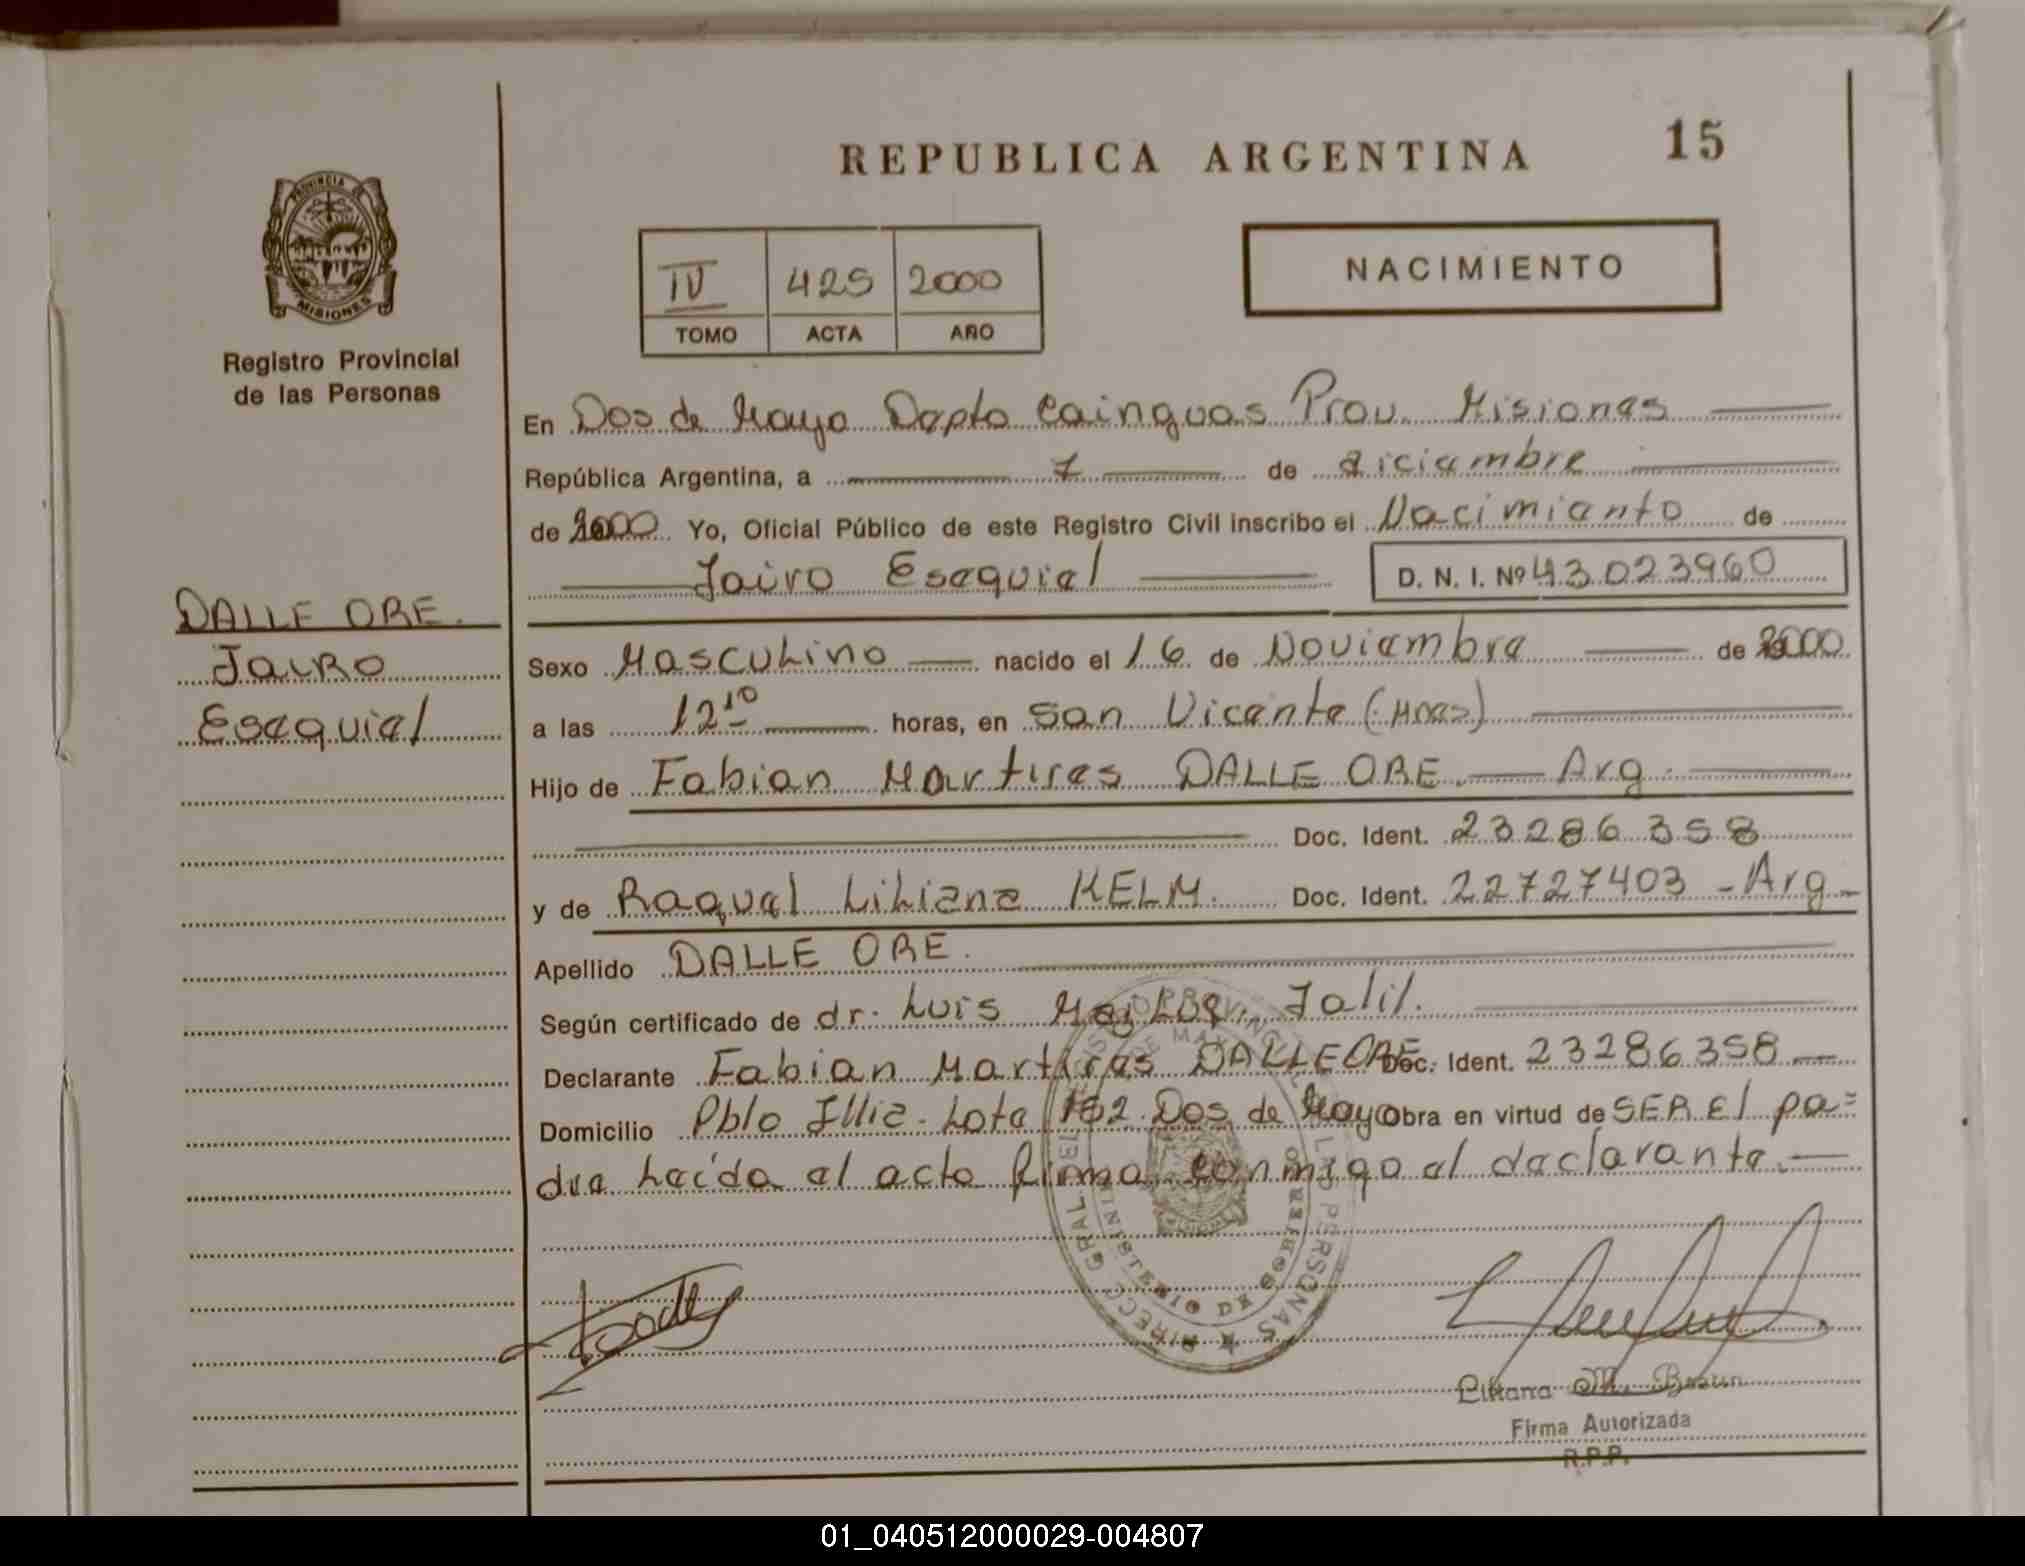 REPUBLICA ARGENTINA 15
PROVINCIA DE
MISIONES
Registro Provincial
de las Personas
IV 425 2000
TOMO ACTA AÑO
NACIMIENTO
En Dos de Mayo Depto Cainguas Prov. Misiones
República Argentina, a 7 de diciembre
de 2000 Yo, Oficial Público de este Registro Civil inscribo el Nacimiento de
Jairo Esequiel D. N. I. Nº 43023960
DALLE ORE.
Jairo
Esequiel
Sexo Masculino nacido el 16 de Noviembre de 2000
a las 12 10 horas, en San Vicente (Mnes)
Hijo de Fabian Martires DALLE ORE. Arg.
Doc. Ident. 23286358
y de Raquel Liliana KELM. Doc. Ident. 22727403 - Arg -
Apellido DALLE ORE.
Según certificado de dr. Luis Jalil.
Declarante Fabian Martires DALLE ORE Doc. Ident. 23286358
Domicilio Pblo Illia - Lote 162 Dos de Mayo Obra en virtud de SER El pa=
dre Leída el acta firma conmigo el declarante.
MINISTERIO DE GOBIERNO
Liliana M. Braun
Firma Autorizada
R.P.P.
01_040512000029-004807